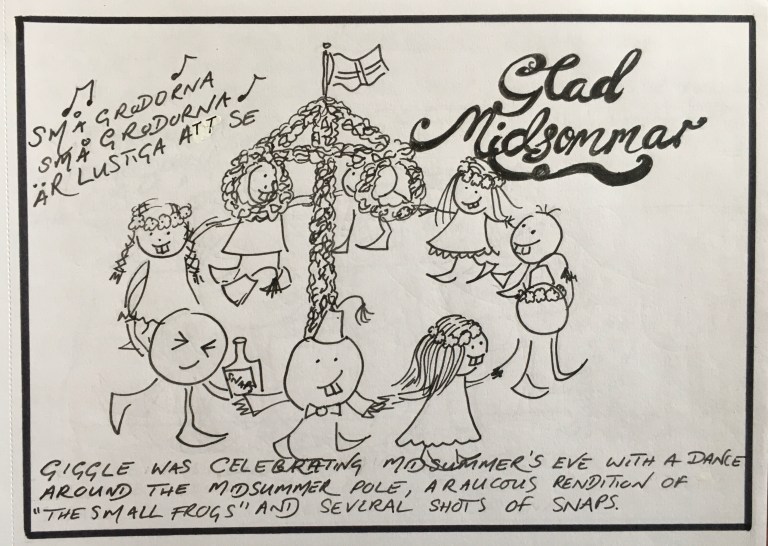 SMÅ GRODORNA
SMÅ GRODORNA
ÄR LUSTIGA ATT SE
Glad
Midsommar
SNAPS
GIGGLE WAS CELEBRATING MIDSUMMER'S EVE WITH A DANCE
AROUND THE MIDSUMMER POLE, A RAUCOUS RENDITION OF
"THE SMALL FROGS" AND SEVERAL SHOTS OF SNAPS.